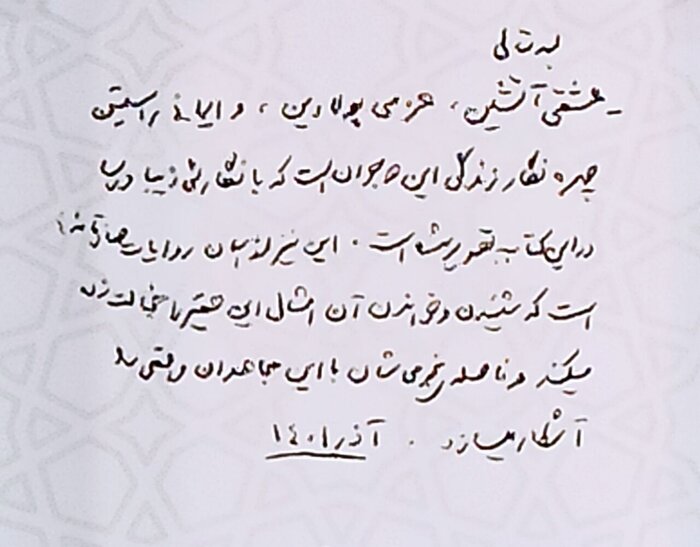 بسمه تعالی
- عشقی آتشین، عزمی پولادین، و ایمانی راستین
چهره نگار زندگی این جوان است که با نگارشی زیبا و رسا
در این کتاب تصویر شده است. این نیز از آن روایات صادقانه‌ای
است که شنیدن و خواندن آن امثال این حقیر را خجالت زده
میکند و فاصله‌ی نجومی شان با این مجاهدان واقعی را
آشکار میسازد. آذر ۱۴۰۱